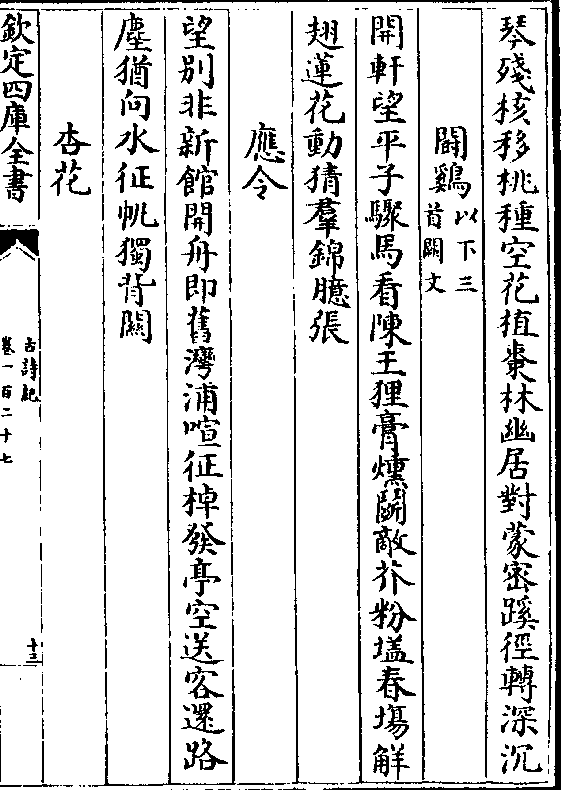 琴殘核移桃種空花植棗林幽居對蒙密蹊徑轉深沉
鬬鷄以下三首闕文
開軒望平子驟馬看陳王狸膏燻鬬敵芥粉壒春塲解
翅蓮花動猜羣錦臆張
應令
望别非新館開舟即舊灣浦喧征棹發亭空送客還路
塵猶向水征帆獨背闗
杏花
欽定四庫全書
古詩紀
卷一百二十七
十三